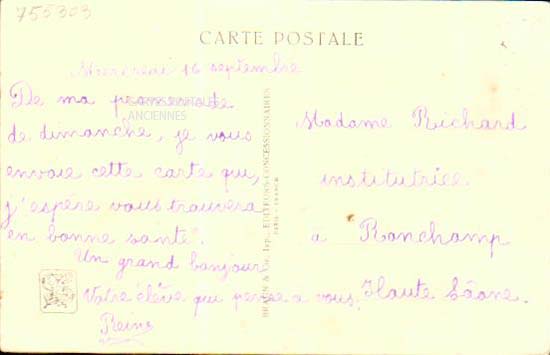 755303
CARTE POSTALE
Mercredi 16 septembre
De ma promenade
de dimanche, je vous
envoie cette carte qui,
j'espère vous trouvera
en bonne santé.
Un grand bonjour
Votre élève qui pense à vous.
Reine
CARTES POSTALES
ANCIENNES
BRAUN & Cie, Imp., EDITEURS-CONCESSIONNAIRES
PARIS - FRANCE
Madame Richard
institutrice.
à Ronchamp
Haute Saône.